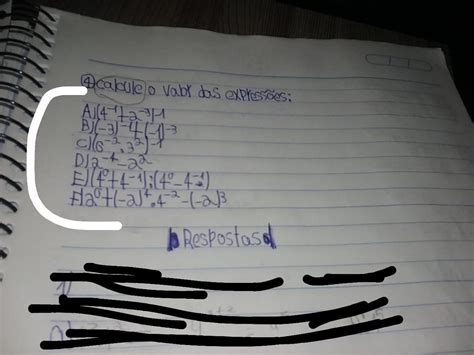 4) calcule o valor das expressões:
A)(4⁻¹+2⁻³)⁻¹
B)(-3)⁻⁴-(-1)⁻³
C)(6⁻².3²)⁻¹
D)2⁻⁴-2⁻²
E)(4⁰+4⁻¹):(4⁰-4⁻¹)
F)2⁰+(-2)⁴.4⁻²-(-2)³
Respostas
1)